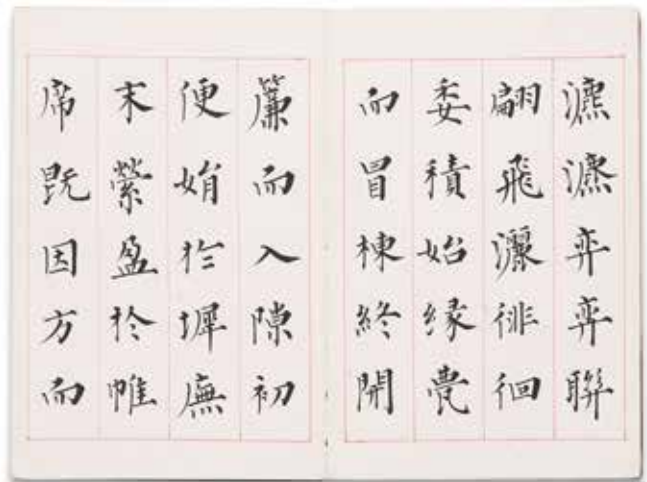 瀌瀌弈弈聯
翩飛灑徘徊
委積始緣甍
而冒棟終開
簾而入隙初
便娟於墀廡
末縈盈於帷
席既因方而